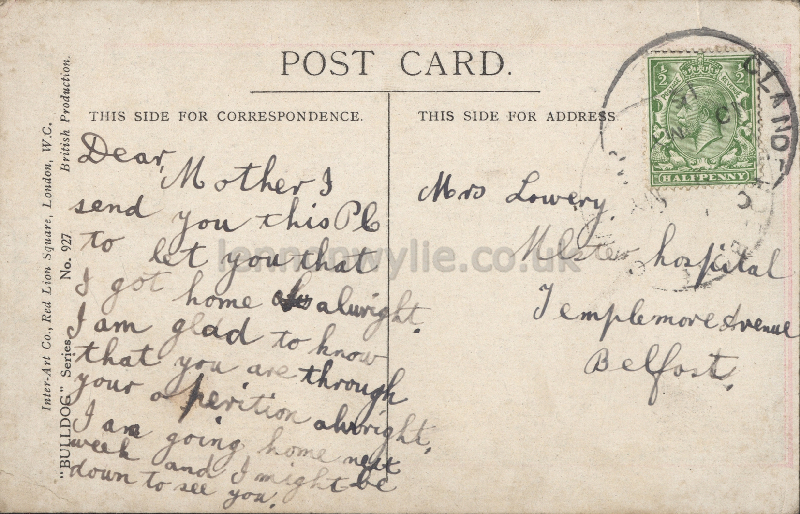 POST CARD.
THIS SIDE FOR CORRESPONDENCE.
THIS SIDE FOR ADDRESS
Inter-Art Co., Red Lion Square, London, W.C.
British Production.
"BULLDOG" Series. No. 927.
Dear Mother I
send you this PC
to let you that
I got home alwright.
I am glad to know
that you are through
your o perition alwright.
I am going home next
week and I might be
down to see you.
Mrs Lowery.
Ulster hospital
Templemore Avenue
Belfast.
½ ½
HALFPENNY
CLANDE
lennonwylie.co.uk